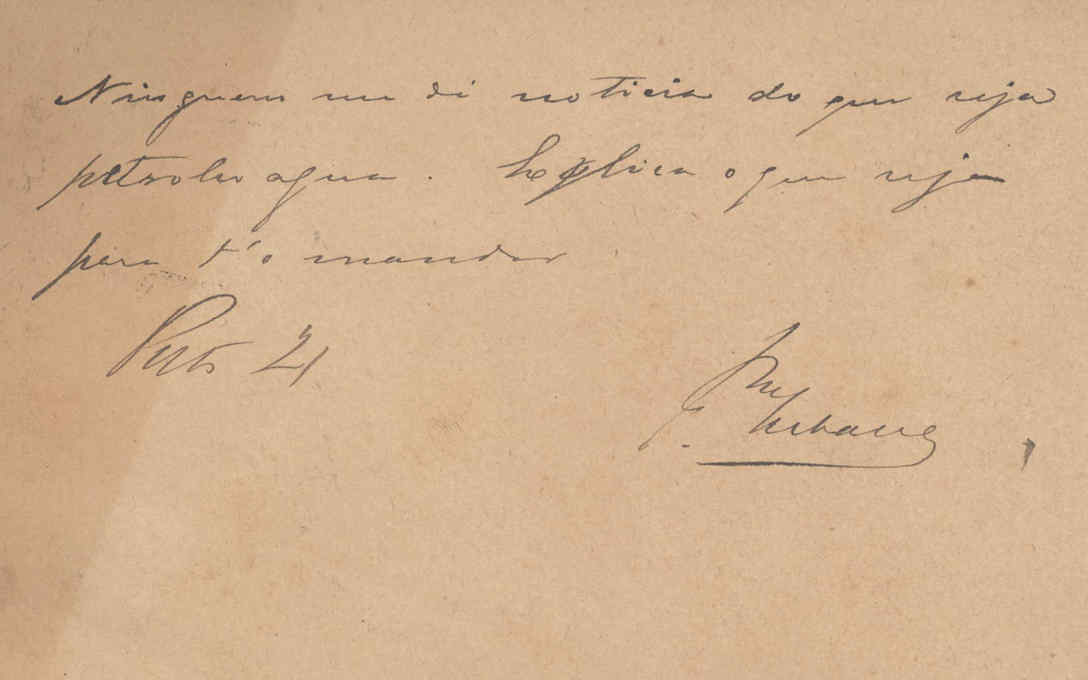 Ninguem me dá noticia do que seja
petroleo agua. Explica o que seja
para t'o mandar
Porto 21